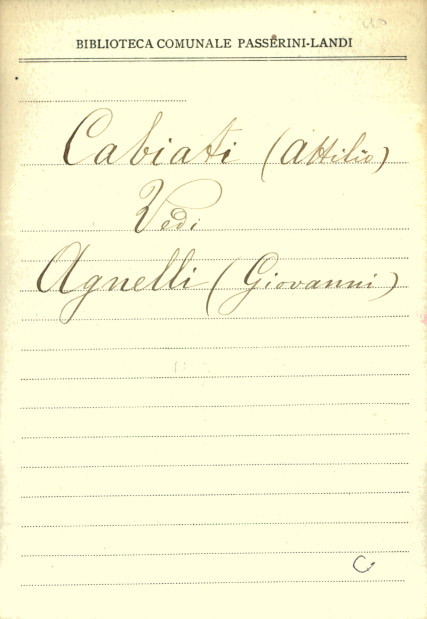 BIBLIOTECA COMUNALE PASSERINI-LANDI
Cabiati (Attilio)
Vedi
Agnelli (Giovanni)
C